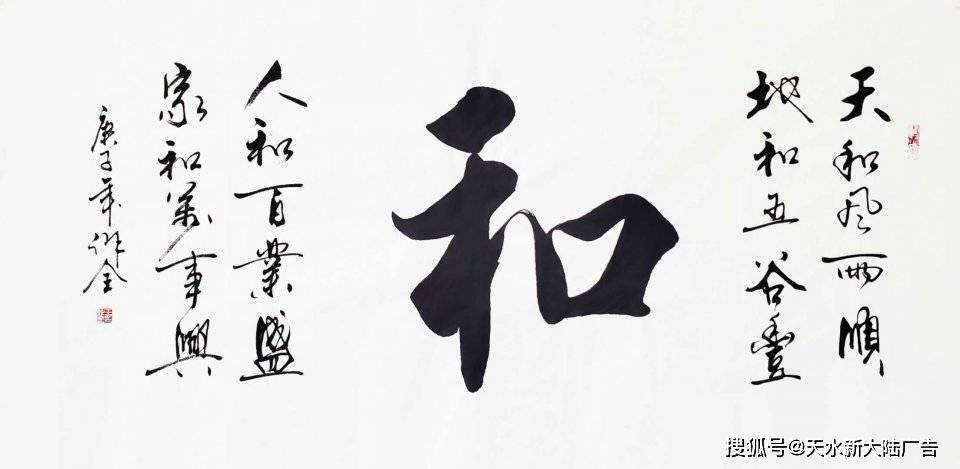 天和风雨顺
地和五谷豐
和
人和百業盛
家和萬事興
庚子年
搜狐号@天水新大陆广告